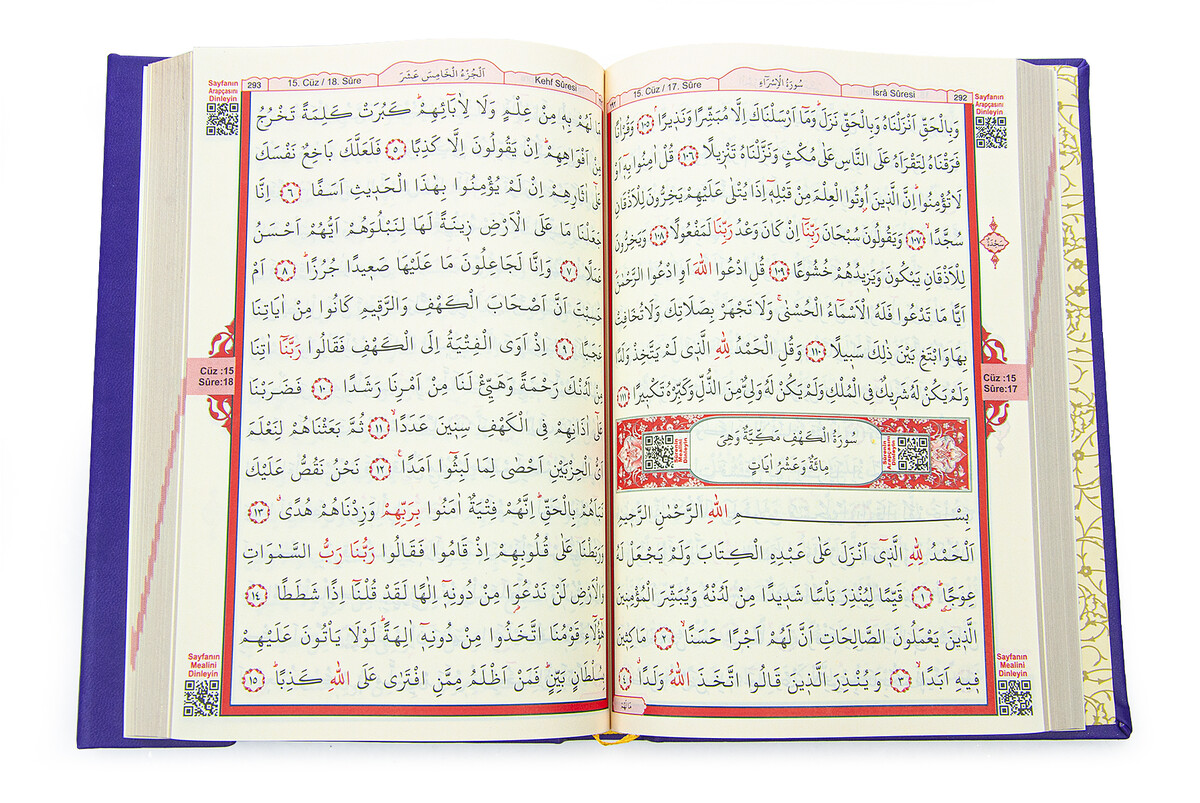 292
سُورَةُ الْاِسْرَٓاءِ
15. Cüz / 17. Sûre
İsrâ Sûresi
Sayfanın
Arapçasını
Dinleyin
وَبِالْحَقِّ اَنْزَلْنَاهُ وَبِالْحَقِّ نَزَلَۜ وَمَٓا اَرْسَلْنَاكَ اِلَّا مُبَشِّرًا وَنَذ۪يرًاۢ ﴿١٠٥﴾ وَقُرْاٰنًا
فَرَقْنَاهُ لِتَقْرَاَهُ عَلَى النَّاسِ عَلٰى مُكْثٍ وَنَزَّلْنَاهُ تَنْز۪يلًا ﴿١٠٦﴾ قُلْ اٰمِنُوا بِه۪ٓ اَوْ
لَا تُؤْمِنُواۜ اِنَّ الَّذ۪ينَ اُو۫تُوا الْعِلْمَ مِنْ قَبْلِه۪ٓ اِذَا يُتْلٰى عَلَيْهِمْ يَخِرُّونَ لِلْاَذْقَانِ
سُجَّدًاۙ ﴿١٠٧﴾ وَيَقُولُونَ سُبْحَانَ رَبِّنَٓا اِنْ كَانَ وَعْدُ رَبِّنَا لَمَفْعُولًا ﴿١٠٨﴾ وَيَخِرُّونَ
لِلْاَذْقَانِ يَبْكُونَ وَيَز۪يدُهُمْ خُشُوعًا ﴿١٠٩﴾ قُلِ ادْعُوا اللّٰهَ اَوِ ادْعُوا الرَّحْمٰنَۜ
اَيًّا مَا تَدْعُوا فَلَهُ الْاَسْمَٓاءُ الْحُسْنٰىۚ وَلَا تَجْهَرْ بِصَلَاتِكَ وَلَا تُخَافِتْ
بِهَا وَابْتَغِ بَيْنَ ذٰلِكَ سَب۪يلًا ﴿١١٠﴾ وَقُلِ الْحَمْدُ لِلّٰهِ الَّذ۪ي لَمْ يَتَّخِذْ وَلَدًا
وَلَمْ يَكُنْ لَهُ شَر۪يكٌ فِي الْمُلْكِ وَلَمْ يَكُنْ لَهُ وَلِيٌّ مِنَ الذُّلِّ وَكَبِّرْهُ تَكْب۪يرًا ﴿١١١﴾
سُورَةُ الْكَهْفِ مَكِّيَّةٌ وَهِيَ
مِائَةٌ وَعَشْرُ اٰيَاتٍ
بِسْمِ اللّٰهِ الرَّحْمٰنِ الرَّح۪يمِ
اَلْحَمْدُ لِلّٰهِ الَّذ۪ٓي اَنْزَلَ عَلٰى عَبْدِهِ الْكِتَابَ وَلَمْ يَجْعَلْ لَهُ
عِوَجًاۜ ﴿١﴾ قَيِّمًا لِيُنْذِرَ بَأْسًا شَد۪يدًا مِنْ لَدُنْهُ وَيُبَشِّرَ الْمُؤْمِن۪ينَ
الَّذ۪ينَ يَعْمَلُونَ الصَّالِحَاتِ اَنَّ لَهُمْ اَجْرًا حَسَنًاۙ ﴿٢﴾ مَاكِث۪ينَ
ف۪يهِ اَبَدًاۙ ﴿٣﴾ وَيُنْذِرَ الَّذ۪ينَ قَالُوا اتَّخَذَ اللّٰهُ وَلَدًاۗ ﴿٤﴾
مَا لَهُمْ
Cüz :15
Sûre:17
Sayfanın
Mealini
Dinleyin
293
15. Cüz / 18. Sûre
اَلْجُزْءُ الْخَامِسَ عَشَرَ
Kehf Sûresi
Sayfanın
Arapçasını
Dinleyin
مَا لَهُمْ بِه۪ مِنْ عِلْمٍ وَلَا لِاٰبَٓائِهِمْۜ كَبُرَتْ كَلِمَةً تَخْرُجُ
مِنْ اَفْوَاهِهِمْۜ اِنْ يَقُولُونَ اِلَّا كَذِبًا ﴿٥﴾ فَلَعَلَّكَ بَاخِعٌ نَفْسَكَ
عَلٰٓى اٰثَارِهِمْ اِنْ لَمْ يُؤْمِنُوا بِهٰذَا الْحَد۪يثِ اَسَفًا ﴿٦﴾ اِنَّا
جَعَلْنَا مَا عَلَى الْاَرْضِ ز۪ينَةً لَهَا لِنَبْلُوَهُمْ اَيُّهُمْ اَحْسَنُ
عَمَلًا ﴿٧﴾ وَاِنَّا لَجَاعِلُونَ مَا عَلَيْهَا صَع۪يدًا جُرُزًاۜ ﴿٨﴾ اَمْ
حَسِبْتَ اَنَّ اَصْحَابَ الْكَهْفِ وَالرَّق۪يمِ كَانُوا مِنْ اٰيَاتِنَا
عَجَبًا ﴿٩﴾ اِذْ اَوَى الْفِتْيَةُ اِلَى الْكَهْفِ فَقَالُوا رَبَّنَٓا اٰتِنَا
مِنْ لَدُنْكَ رَحْمَةً وَهَيِّئْ لَنَا مِنْ اَمْرِنَا رَشَدًا ﴿١٠﴾ فَضَرَبْنَا
عَلٰٓى اٰذَانِهِمْ فِي الْكَهْفِ سِن۪ينَ عَدَدًاۙ ﴿١١﴾ ثُمَّ بَعَثْنَاهُمْ لِنَعْلَمَ
اَيُّ الْحِزْبَيْنِ اَحْصٰى لِمَا لَبِثُٓوا اَمَدًا۟ ﴿١٢﴾ نَحْنُ نَقُصُّ عَلَيْكَ
نَبَاَهُمْ بِالْحَقِّۜ اِنَّهُمْ فِتْيَةٌ اٰمَنُوا بِرَبِّهِمْ وَزِدْنَاهُمْ هُدًىۗ ﴿١٣﴾
وَرَبَطْنَا عَلٰى قُلُوبِهِمْ اِذْ قَامُوا فَقَالُوا رَبُّنَا رَبُّ السَّمٰوَاتِ
وَالْاَرْضِ لَنْ نَدْعُوَ۬ا مِنْ دُونِه۪ٓ اِلٰهًا لَقَدْ قُلْنَٓا اِذًا شَطَطًا ﴿١٤﴾
هٰٓؤُ۬لَٓاءِ قَوْمُنَا اتَّخَذُوا مِنْ دُونِه۪ٓ اٰلِهَةًۜ لَوْلَا يَأْتُونَ عَلَيْهِمْ
بِسُلْطَانٍ بَيِّنٍۜ فَمَنْ اَظْلَمُ مِمَّنِ افْتَرٰى عَلَى اللّٰهِ كَذِبًاۜ ﴿١٥﴾
Cüz :15
Sûre:18
Sayfanın
Mealini
Dinleyin